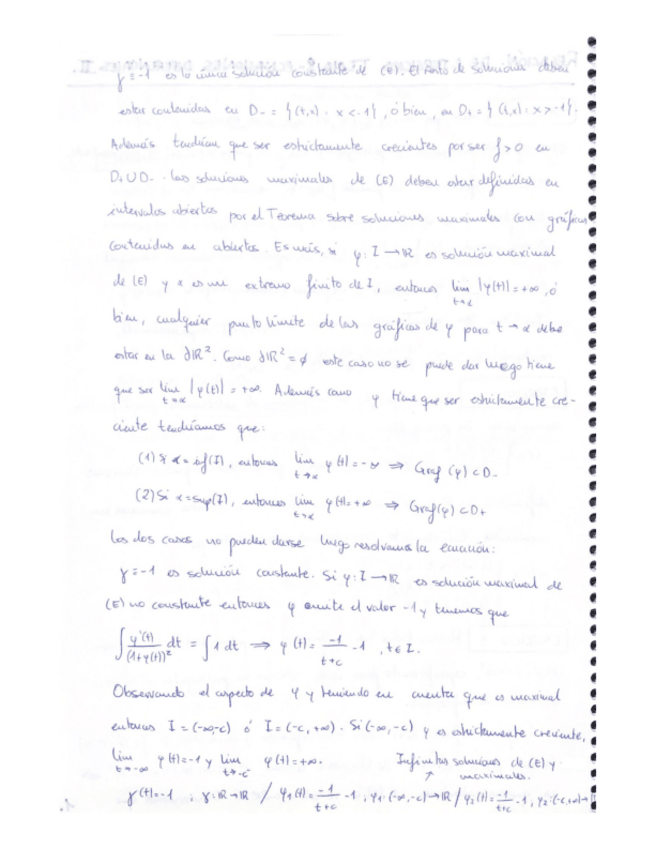 γ ≡ -1 es la única solución constante de (E). El resto de soluciones deben
estar contenidas en D₋ = {(t,x) : x < -1}, ó bien, en D₊ = {(t,x) : x > -1}.
Además tendrían que ser estrictamente crecientes por ser f > 0 en
D₊ ∪ D₋. Las soluciones maximales de (E) deben estar definidas en
intervalos abiertos por el Teorema sobre soluciones maximales con gráficas
contenidas en abiertos. Es más, si φ: I → ℝ es solución maximal
de (E) y α es un extremo finito de I, entonces lim_{t→α} |φ(t)| = +∞, ó
bien, cualquier punto límite de las gráficas de φ para t → α debe
estar en la ∂ℝ². Como ∂ℝ² = ∅ este caso no se puede dar luego tiene
que ser lim_{t→α} |φ(t)| = +∞. Además como φ tiene que ser estrictamente cre-
ciente tendríamos que:
(1) Si α = inf(I), entonces lim_{t→α} φ(t) = -∞ ⇒ Graf(φ) ⊂ D₋
(2) Si α = sup(I), entonces lim_{t→α} φ(t) = +∞ ⇒ Graf(φ) ⊂ D₊
Los dos casos no pueden darse luego resolvamos la ecuación:
γ ≡ -1 es solución constante. Si φ: I → ℝ es solución maximal de
(E) no constante entonces φ omite el valor -1 y tenemos que
∫ φ'(t)/(1+φ(t))² dt = ∫ 1 dt ⇒ φ(t) = -1/(t+c) - 1, t ∈ I.
Observando el aspecto de φ y teniendo en cuenta que es maximal
entonces I = (-∞,-c) ó I = (-c,+∞). Si (-∞,-c) φ es estrictamente creciente,
lim_{t→-∞} φ(t) = -1 y lim_{t→-c⁻} φ(t) = +∞. Infinitas soluciones de (E) y
maximales.
γ(t) = -1, γ: ℝ → ℝ / φ₁(t) = -1/(t+c) - 1, φ₁: (-∞,-c) → ℝ / φ₂(t) = -1/(t+c) - 1, φ₂: (-c,+∞) →